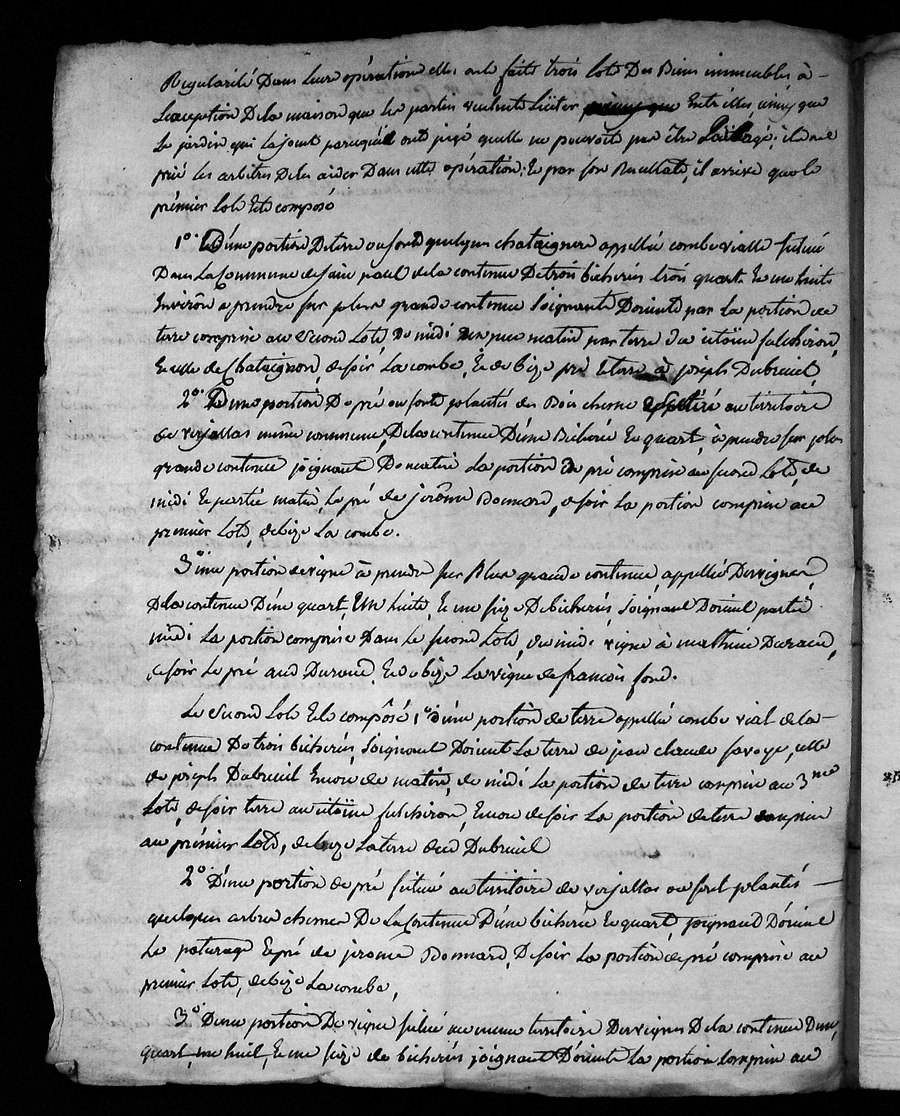 Regularité Dans leure opération elles ont faits trois lots Des Biens immeubles à -
Lexception De la maison que les parties veulente Liciter entre elles ainsy que
Le jardin qui La joint parcequ'el ont jugé quelle ne pouvoit pas être ils ont
prié les arbitres De les aider Dans cette opération, Et par son Resultats, il arrive que le
prémier Lots Ets composé
1º. D'une portion De terre ou sont quelques chataignere appellée combe vialle situé
Dans La Commune de sain paul de la contenue De trois bicherés trois quart Et une huite
Environ a prendre sur plus grande contenue Joignante Doriente par La portion de
terre comprise au second Lots, De midi un peu matin par terre du citoïen fulchiron,
Et celle de Chataignon, de soir La combe, Et de bize pré Et terre à joseph Dubreuil,
2º. D'une portion De pré ou sonts plantés des Bois chesne au territoire
de verjattas même commune, De la contenue D'une Bicherée Et quart, à prendre sur plus
grande contenue joignant De matin La portion De pré comprise au second Lots, de
midi Et partie matin, Le pré de jerôme Bonnard, de soir La portion comprise au
premier Lots, de bize La combe.
3º une portion de vigne à prendre sur Plus grande contenue appellée Desvignes
De la contenue D'une quart, Une huite, Et une seize De bicherés, Joignant Dorient partie
midi La portion comprise Dans Le second Lots, de midi vigne à mathieu Durand,
de soir Le pré aud Durand, Et de bize La vigne de francois fond.
Le second Lots Ets compôsé 1º. d'une portion de terre appellée combe vial de la -
contenue De trois bicherés, Joignant Dorient La terre de jean claude savoye, celle
de joseph Dubreuil Encore de matin, de midi La portion de terre comprise au 3me
Lots, de soir terre au citoïen fulchiron, Encore de soir La portion de terre comprise
au prémier Lots, de bize La terre dud Dubreuil
2º. D'une portion de pré situé au territoire de verjattas ou sont plantés -
quelques arbre chesne De La Contenue D'une bicherée Et quart, joignand D'orient
Le paturage Et pré de jerome Bonnard, De soir La portion de pré comprise au
premier Lots, de bize La combe,
3º. D'une portion De vigne située au meme territoire Desvignes De la contenue D'un
quart, une huit, Et une seize de bicherés joignant D'oriente La portion comprise au